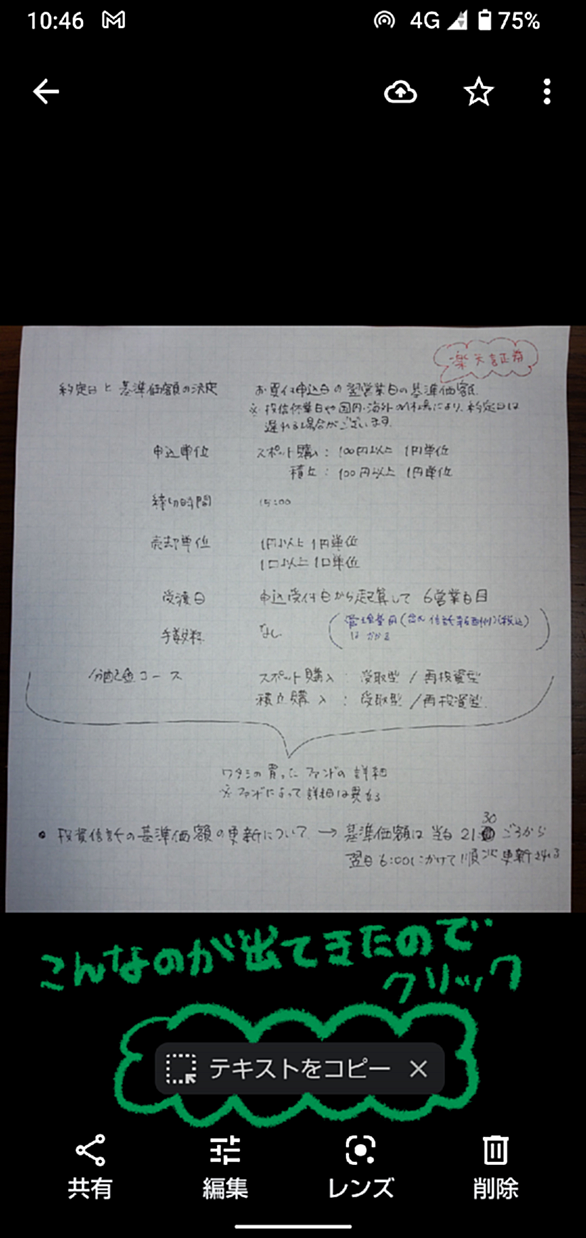 10:46
4G
75%
楽天証券
約定日と基準価額の決定
お買付申込日の翌営業日の基準価額
※ 投信休業日や国内・海外の休場により、約定日は
遅れる場合がございます。
申込単位
スポット購入: 100円以上 1円単位
積立: 100円以上 1円単位
締切時間
15:00
売却単位
1円以上 1円単位
1口以上 1口単位
受渡日
申込受付日から起算して 6営業日目
手数料
なし
(管理費用(含む信託報酬)(税込)
はかかる)
分配金コース
スポット購入: 受取型 / 再投資型
積立購入: 受取型 / 再投資型
ワタシの買ったファンドの詳細
※ファンドによって詳細は異なる
• 投資信託の基準価額の更新について → 基準価額は 当日 21:30 ごろから
翌日 6:00にかけて順次更新される
こんなのが出てきたので
クリック
テキストをコピー ×
共有
編集
レンズ
削除